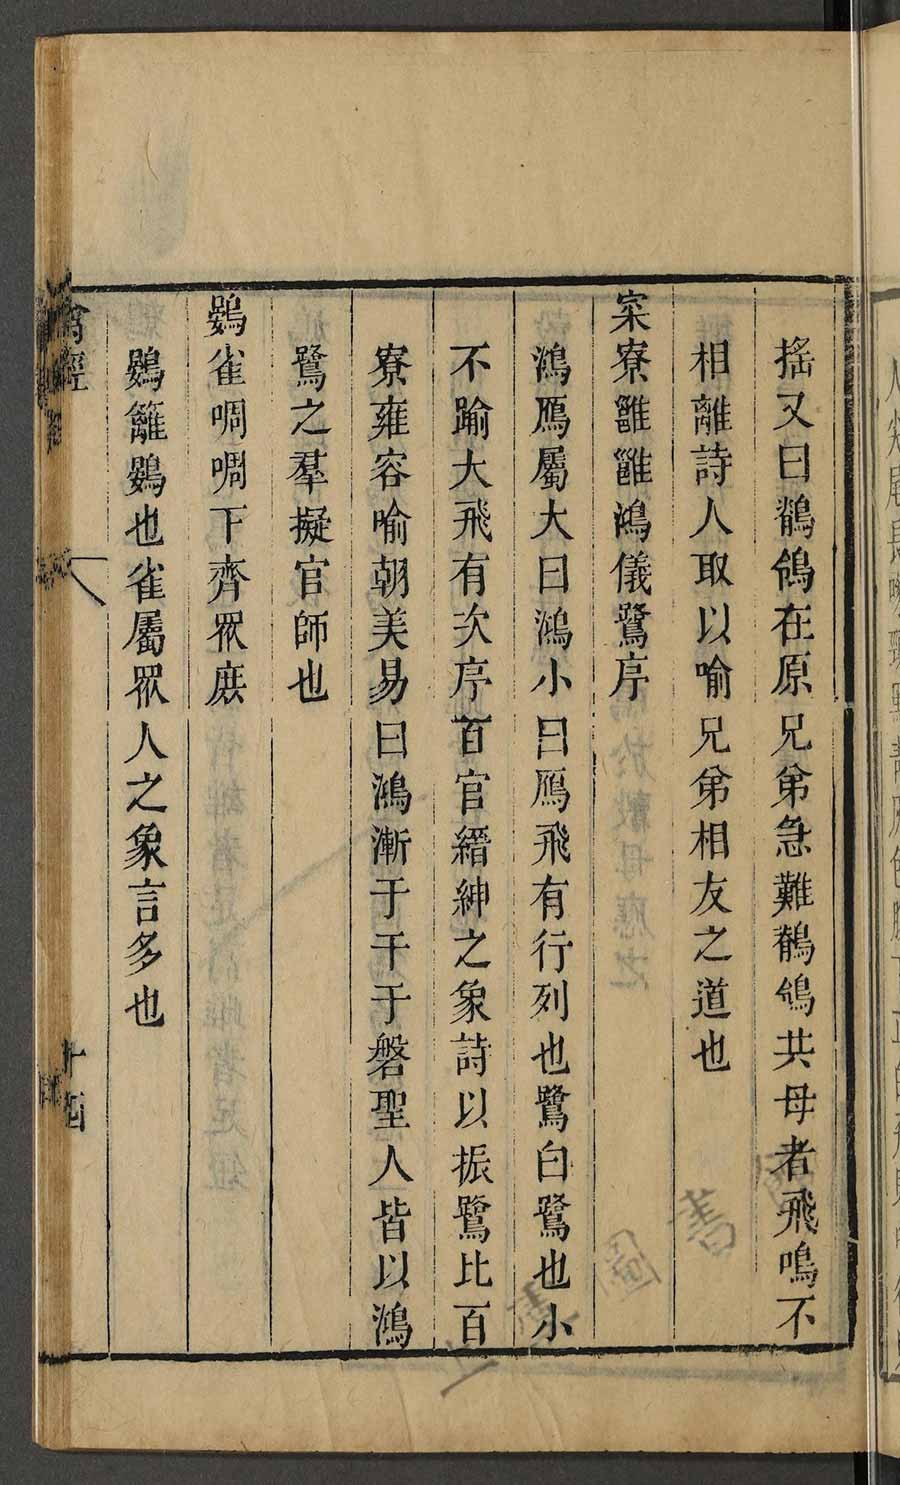 搖又曰鶺鴒在原兄弟急難鶺鴒共母者飛鳴不
相離詩人取以喻兄弟相友之道也
寀寮雝雝鴻儀鷺序
鴻鴈屬大曰鴻小曰鴈飛有行列也鷺白鷺也小
不踰大飛有次序百官縉紳之象詩以振鷺比百
寮雍容喻朝美易曰鴻漸于干于磐聖人皆以鴻
鷺之羣擬官師也
鷃雀啁啁下齊眾庶
鷃籬鷃也雀屬眾人之象言多也
禽經
十四